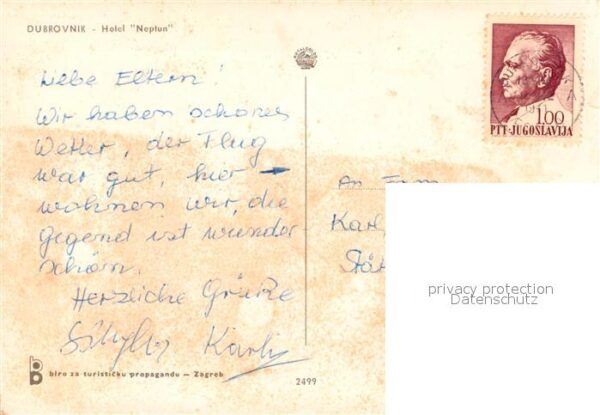 DUBROVNIK - Hotel "Neptun"
Liebe Eltern!
Wir haben schönes
Wetter, der Flug
war gut, hier
wohnen wir, die
Gegend ist wunder-
schön.
Herzliche Grüße
Karli
biro za turističku propagandu — Zagreb
2499
1.00
PTT-JUGOSLAVIJA
An Fam
Karl
privacy protection
Datenschutz